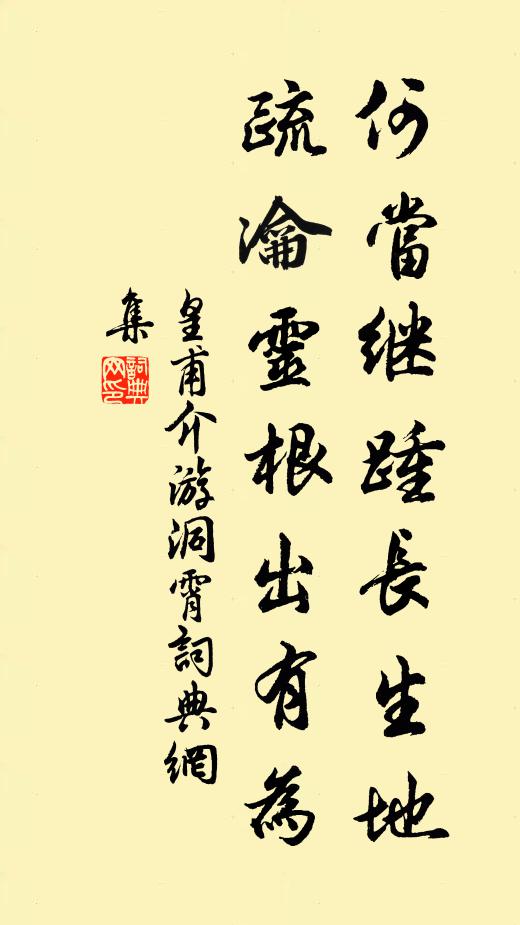 何當继踵長生地
疏瀹靈根出有為
皇甫介游洞霄詞典網
集
詞典
网印